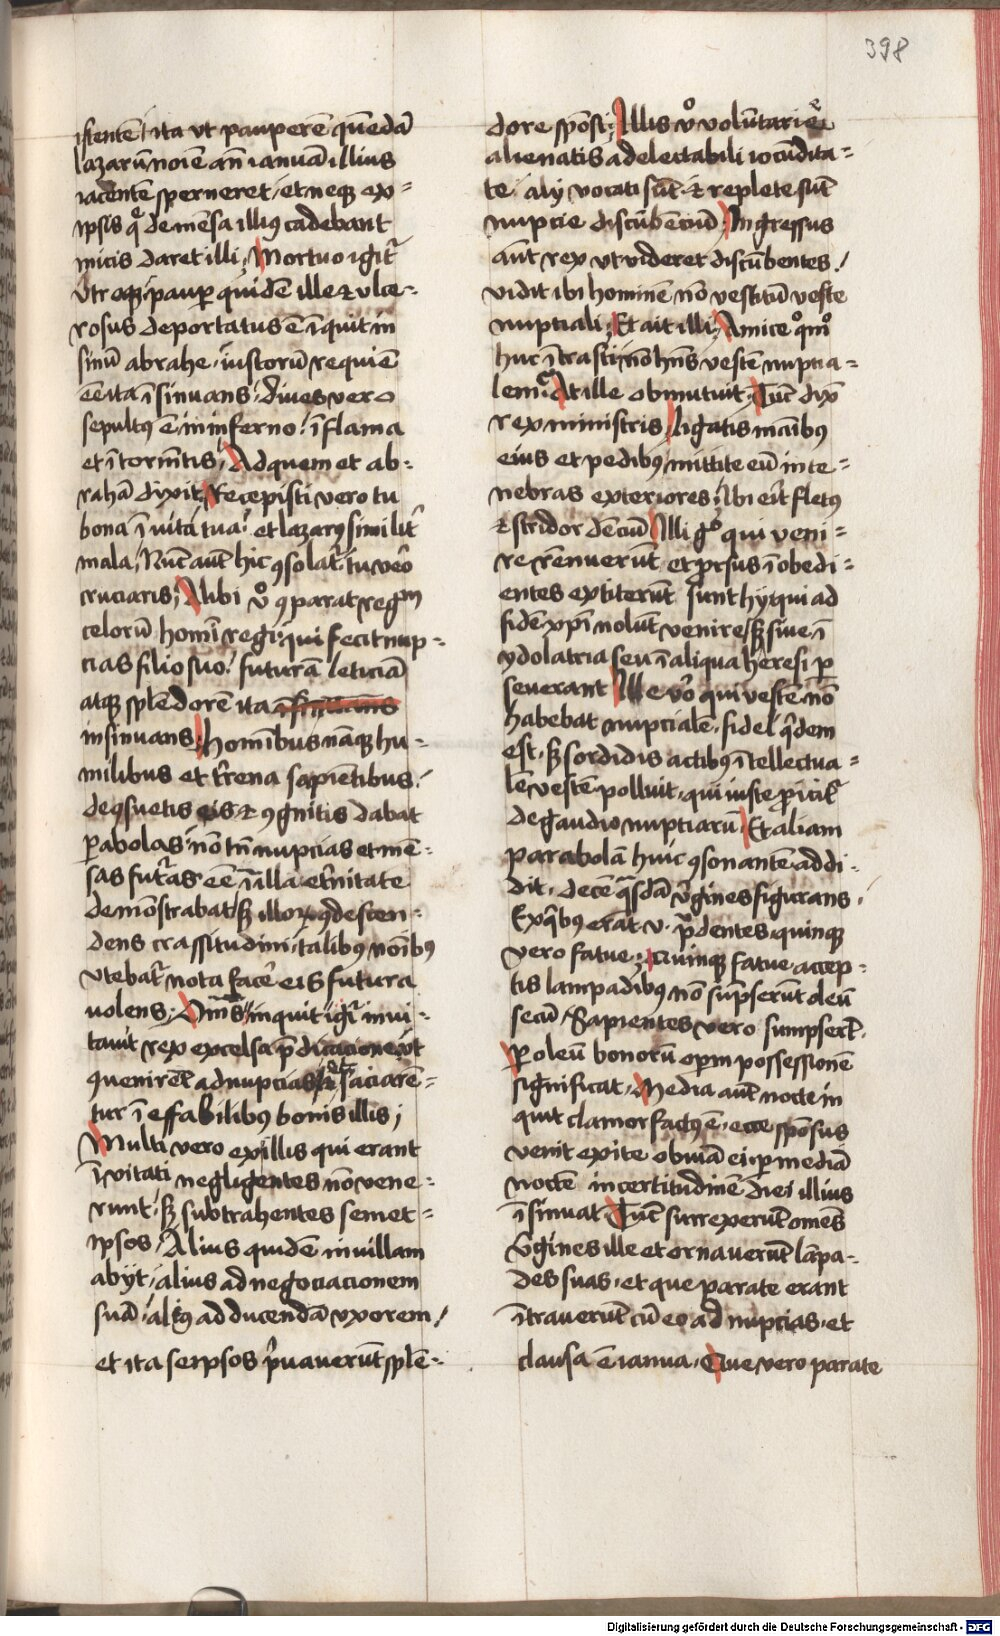 398
istentē / ita vt pauperē quēdā
lazarū noīe an̄ ianuā illius
iacentē sperneret / et neqȝ ex=
ipsis q̄ de mēsa illiꝯ cadebant
micis daret illi / Mortuo igit᷑
vtroqȝ paup̄ quidē ille ⁊ vlce=
rosus deportatus ē īquit in
sinū abrahe · iustorū requiē
eē ita īsinuans / diues vero
sepultꝯ ē in inferno / ī flama
et ī torm̄tis / Ad quem et ab=
rahā dixit / Recepisti vero tu
bona ī vita tua / et lazarꝯ similit᷑
mala / Nūc aūt hic ꝯsolat᷑ tu vēo
cruciaris / Alibi v̊ ꝯparat regm̄
celorū homī regi / qui fecit nup=
cias filio suo / futurā leticiā
atqȝ splēdorē ita
insinuans / Homībus nāqȝ hu=
milibus et t̄rena sapiētibus /
de ꝯsuetis eis ⁊ ꝯgnitis dabat
ꝑabolas / nō tn̄ nupcias et mē=
sas fut᷑as eē ī illa et̄nitate
demōstrabat / sȝ illoꝝ ꝯdescen=
dens crassitudini / talibus noībꝯ
vtebat᷑ nota facē eis futura
volens / Om̄s inquit igr̄ invi=
tavit rex excelsa p̄dicacione vt
ꝯuenirēt ad nupcias / ⁊ saciarē=
tur ī effabilibꝯ bonis illis /
Multi vero ex illis qui erant
īvitati negligentes nō vene=
runt / sȝ subtrahentes semet=
ipsos / Alius quidē in villam
abijt / alius ad negociacionem
suā / aliꝯ ad ducendā vxorem /
et ita seipsos p̄uauerūt splē=
dore spōsi / Illis v̊ volūtarie
alienatis a delectabili iocūdita=
te / alij vocati sūt · ⁊ replete sūt
nupcie discūbēciū / Ingressus
aūt rex vt videret discūbentes /
vidit ibi hominē nō vestitū veste
nupciali / Et ait illi / Amice qm̊o
huc ītrasti nō hn̄s vestē nupcia=
lem / At ille obmutuit / Tūc dix̄
rex ministris / ligatis manibꝯ
eius et pedibꝯ mittite eū in te=
nebras exteriores / Ibi erit fletꝯ
⁊ stridor dēciū / Illi gͦ qui veni=
re rēnuerūt et prsus īobedi=
entes extiterūt sunt hij qui ad
fidē xpī nolūt venire / sȝ siue ī
ydolatria seu ī aliqua heresi ꝑ
seuerant / Ille vēo qui vestē nō
habebat nupcialē / fidel q̄dem
est · sȝ sordidis actibꝯ ītellectua=
lē vestē polluit · qui iuste ꝓicit᷑
de gaudio nuptiarū / Et aliam
parabolā huic ꝯsonantē addi=
dit · decē q̄sdā v̄gines figurans /
Ex q̄bus erāt · v · p̄dentes · quinqȝ
vero fatue / Quinqȝ fatue accep=
tis lampadibꝯ nō sūpserūt oleū
secū / Sapientes vero sumpserūt ·
Per oleū bonorū operm possessionē
significat · Media aūt nocte in
quit clamor factꝯ ē · ecce spōsus
venit exite obuiā ei / per mediā
noctē incertitudinē diei illius
īsinuat / Tūc surrexerūt omēs
v̄gines ille et ornauerūt lāpa=
des suas · et que parate erant
ītrauerūt cū eo ad nupcias · et
clausa ē ianua · Que vero parate
Digitalisierung gefördert durch die Deutsche Forschungsgemeinschaft - DFG